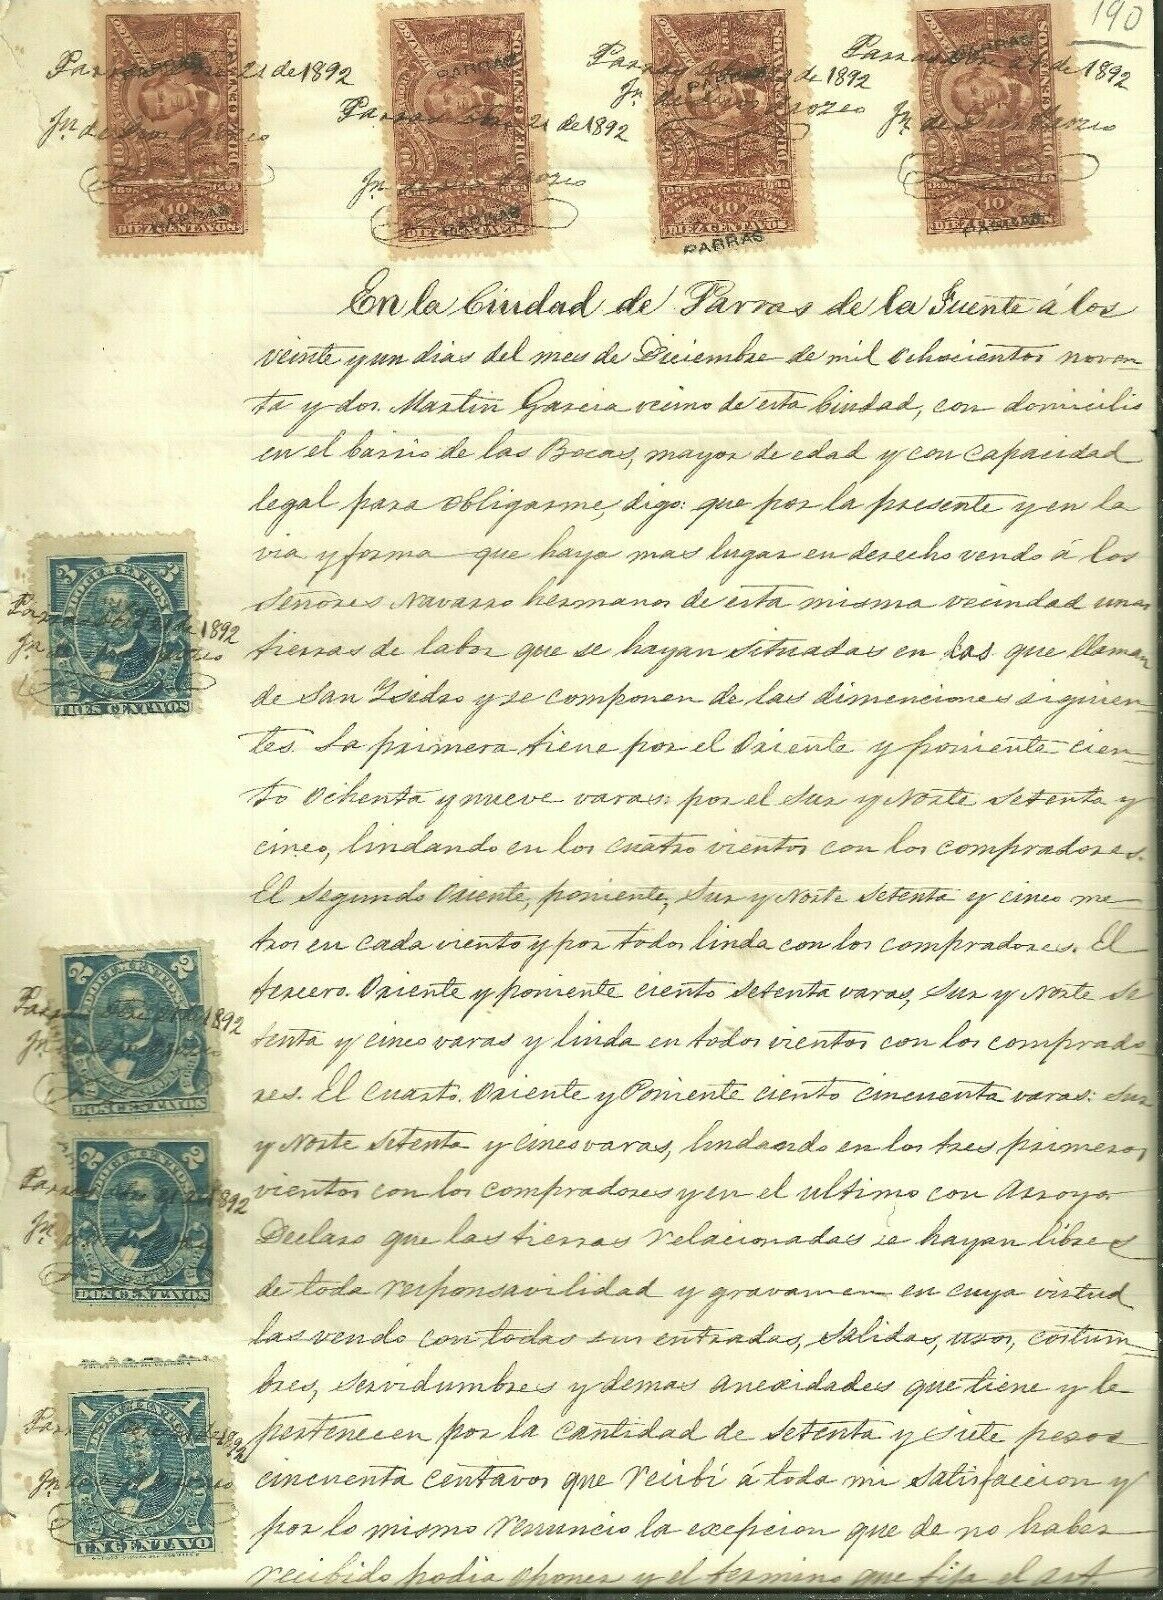 190
Parras Dbre 21 de 1892
Jn. de Dios Orozco
Parras Dbre 21 de 1892
Jn. de Dios Orozco
Parras Dbre 21 de 1892
Jn. de Dios Orozco
Parras Dbre 21 de 1892
Jn. de D. Orozco
DIEZ CENTAVOS
10
PARRAS
DIEZ CENTAVOS
10
PARRAS
DIEZ CENTAVOS
10
PARRAS
DIEZ CENTAVOS
10
PARRAS
En la Ciudad de Parras de la Fuente á los
veinte y un dias del mes de Diciembre de mil ochocientos noven-
ta y dos. Martin Garcia vecino de esta Ciudad, con domicilio
en el barrio de las Bocas, mayor de edad y con capacidad
legal para obligarme, digo: que por la presente y en la
via y forma que haya mas lugar en derecho vendo á los
Señores Navarro hermanos de esta misma vecindad unas
tierras de labor que se hayan situadas en las que llaman
de San Isidro y se componen de las dimenciones siguien-
tes. La primera tiene por el Oriente y poniente cien-
to ochenta y nueve varas: por el Sur y Norte setenta y
cinco, lindando en los cuatro vientos con los compradores.
El segundo Oriente, poniente, Sur y Norte setenta y cinco me-
tros en cada viento y por todos linda con los compradores. El
tercero. Oriente y poniente ciento setenta varas, Sur y Norte se
tenta y cinco varas y linda en todos vientos con los comprado-
res. El cuarto. Oriente y Poniente ciento cincuenta varas: Sur
y Norte setenta y cinco varas, lindando en los tres primeros
vientos con los compradores y en el ultimo con Arroyo.
Declaro que las tierras relacionadas se hayan libres
de toda responsavilidad y gravamen en cuya virtud
las vendo con todas sus entradas, salidas, usos, costum-
bres, servidumbres y demas anexidades que tiene y le
pertenecen por la cantidad de setenta y siete pesos
cincuenta centavos que recibí á toda mi satisfaccion y
por lo mismo renuncio la excepcion que de no haber
recibido podia oponer y el termino que fija el art.
3 DOCUMENTOS 3
Parras Dbre 21 de 1892
Jn. de Dios Orozco
TRES CENTAVOS
2 DOCUMENTOS 2
Parras Dbre 21 de 1892
Jn. de Dios Orozco
DOS CENTAVOS
2 DOCUMENTOS 2
Parras Dbre 21 de 1892
Jn. de Dios Orozco
DOS CENTAVOS
1 DOCUMENTOS 1
Parras Dbre 21 de 1892
Jn. de Dios Orozco
UN CENTAVO